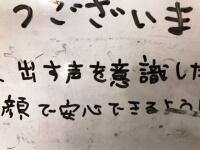 うございま
、出す声を意識した
顔で安心できるよう